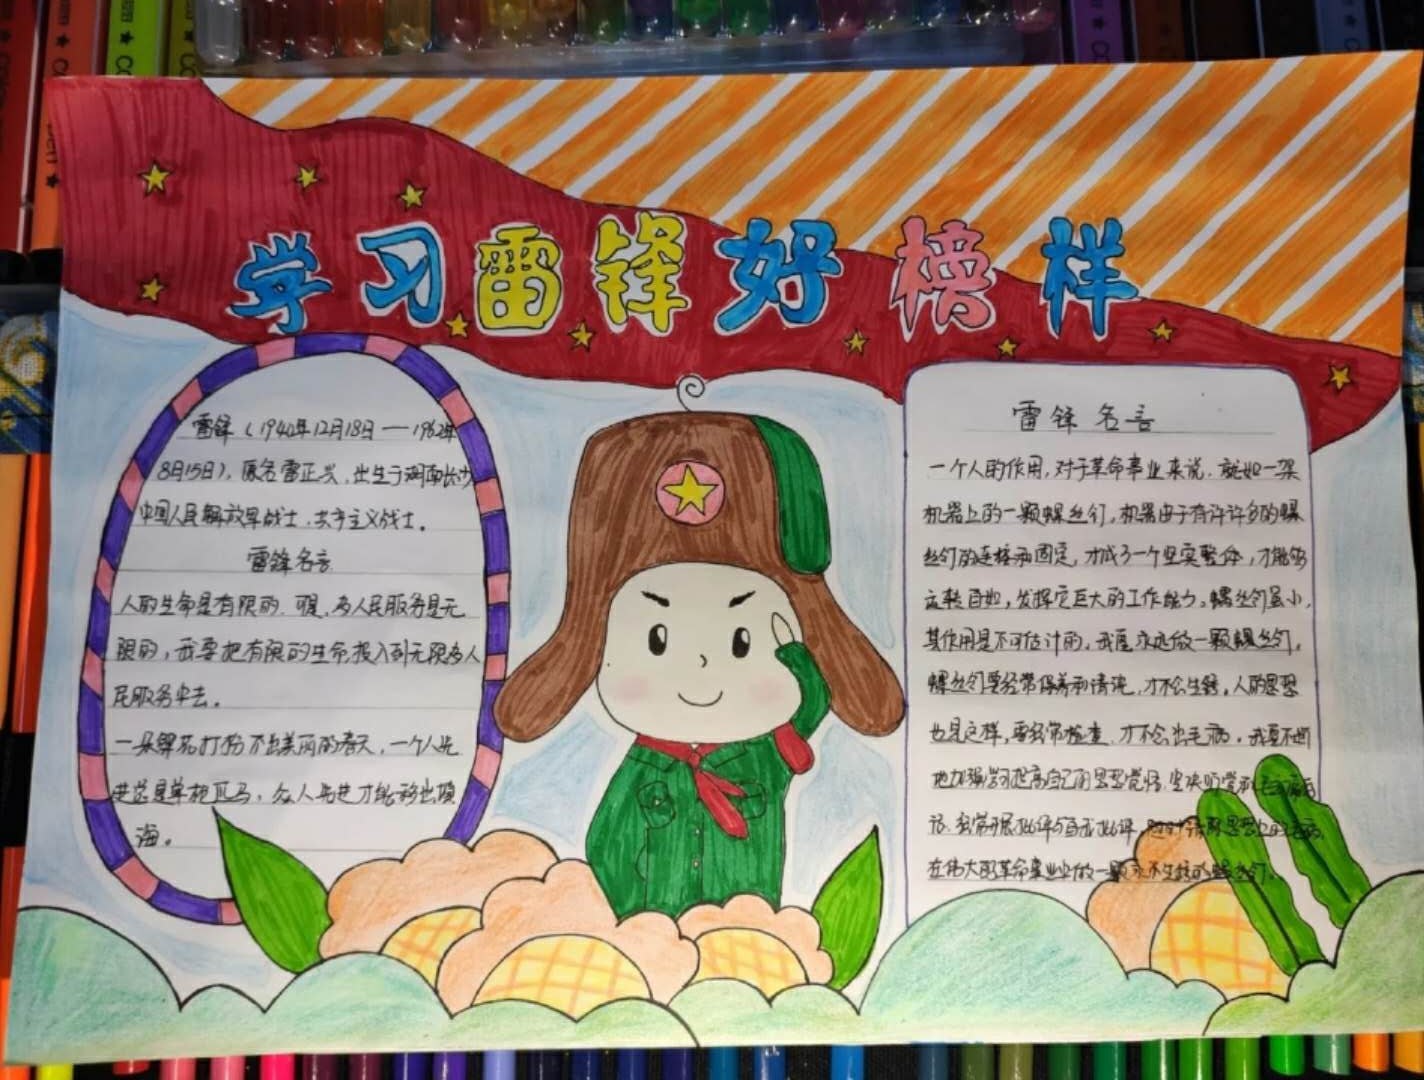 学习雷锋好榜样
雷锋(1940年12月18日——1962年
8月15日),原名雷正兴,出生于湖南长沙
中国人民解放军战士,共产主义战士。
雷锋名言
人的生命是有限的,可是,为人民服务是无
限的,我要把有限的生命,投入到无限为人
民服务中去。
一朵鲜花打扮不出美丽的春天,一个人先
进总是单枪匹马,众人先进才能移山填
海。
雷锋名言
一个人的作用,对于革命事业来说,就如一架
机器上的一颗螺丝钉,机器由于有许许多多的螺
丝钉的连接和固定,才成了一个坚实整体,才能够
运转自如,发挥它巨大的工作能力。螺丝钉虽小,
其作用是不可估计的,我愿永远做一颗螺丝钉。
螺丝钉要经常保养和清洗,才不会生锈。人的思想
也是这样,要经常检查,才不会出毛病。我要不断
地加强学习提高自己的思想觉悟,坚决听党和毛主席的
话,经常开展批评与自我批评,随时清除思想上的毛病,
在伟大的革命事业中做一颗永不生锈的螺丝钉。